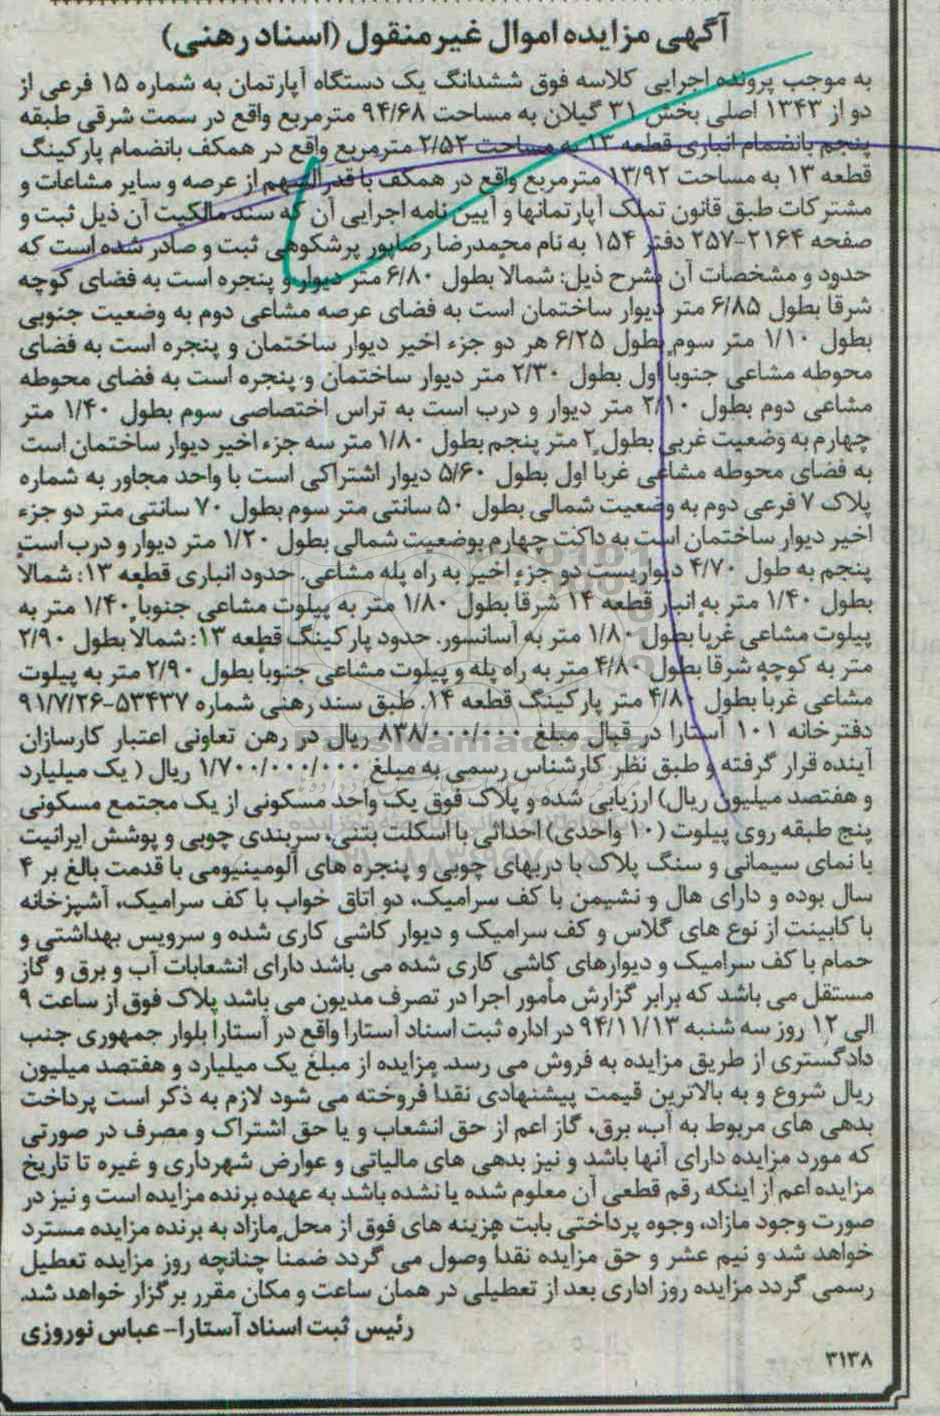 آگهی مزایده اموال غیرمنقول (اسناد رهنی)
به موجب پرونده اجرایی کلاسه فوق ششدانگ یک دستگاه آپارتمان به شماره ۱۵ فرعی از
دو از ۱۳۴۳ اصلی بخش ۳۱ گیلان به مساحت ۹۴/۶۸ مترمربع واقع در سمت شرقی طبقه
پنجم بانضمام انباری قطعه ۱۳ به مساحت ۲/۵۲ مترمربع واقع در همکف بانضمام پارکینگ
قطعه ۱۳ به مساحت ۱۳/۹۲ مترمربع واقع در همکف با قدرالسهم از عرصه و سایر مشاعات و
مشترکات طبق قانون تملک آپارتمانها و آیین نامه اجرایی آن که سند مالکیت آن ذیل ثبت و
صفحه ۲۱۶۴-۲۵۷ دفتر ۱۵۴ به نام محمدرضا رضاپور پرشکوهی ثبت و صادر شده است که
حدود و مشخصات آن بشرح ذیل: شمالاً بطول ۶/۸۰ متر دیوار و پنجره است به فضای کوچه
شرقاً بطول ۶/۸۵ متر دیوار ساختمان است به فضای عرصه مشاعی دوم به وضعیت جنوبی
بطول ۱/۱۰ متر سوم بطول ۶/۲۵ هر دو جزء اخیر دیوار ساختمان و پنجره است به فضای
محوطه مشاعی جنوباً اول بطول ۲/۳۰ متر دیوار ساختمان و پنجره است به فضای محوطه
مشاعی دوم بطول ۲/۱۰ متر دیوار و درب است به تراس اختصاصی سوم بطول ۱/۴۰ متر
چهارم به وضعیت غربی بطول ۲ متر پنجم بطول ۱/۸۰ متر سه جزء اخیر دیوار ساختمان است
به فضای محوطه مشاعی غرباً اول بطول ۵/۶۰ دیوار اشتراکی است با واحد مجاور به شماره
پلاک ۷ فرعی دوم به وضعیت شمالی بطول ۵۰ سانتی متر سوم بطول ۷۰ سانتی متر دو جزء
اخیر دیوار ساختمان است به داکت چهارم بوضعیت شمالی بطول ۱/۲۰ متر دیوار و درب است
پنجم به طول ۴/۷۰ دیواریست دو جزء اخیر به راه پله مشاعی. حدود انباری قطعه ۱۳: شمالاً
بطول ۱/۴۰ متر به انبار قطعه ۱۴ شرقاً بطول ۱/۸۰ متر به پیلوت مشاعی جنوباً ۱/۴۰ متر به
پیلوت مشاعی غرباً بطول ۱/۸۰ متر به آسانسور. حدود پارکینگ قطعه ۱۳: شمالاً بطول ۲/۹۰
متر به کوچه شرقاً بطول ۴/۸۰ متر به راه پله و پیلوت مشاعی جنوباً بطول ۲/۹۰ متر به پیلوت
مشاعی غرباً بطول ۴/۸۰ متر پارکینگ قطعه ۱۴. طبق سند رهنی شماره ۵۳۴۳۷-۹۱/۷/۲۶
دفترخانه ۱۰۱ آستارا در قبال مبلغ ۸۳۸/۰۰۰/۰۰۰ ریال در رهن تعاونی اعتبار کارسازان
آینده قرار گرفته و طبق نظر کارشناس رسمی به مبلغ ۱/۷۰۰/۰۰۰/۰۰۰ ریال (یک میلیارد
و هفتصد میلیون ریال) ارزیابی شده و پلاک فوق یک واحد مسکونی از یک مجتمع مسکونی
پنج طبقه روی پیلوت (۱۰ واحدی) احداثی با اسکلت بتنی، سربندی چوبی و پوشش ایرانیت
با نمای سیمانی و سنگ پلاک با دربهای چوبی و پنجره های آلومینیومی با قدمت بالغ بر ۴
سال بوده و دارای هال و نشیمن با کف سرامیک، دو اتاق خواب با کف سرامیک، آشپزخانه
با کابینت از نوع های گلاس و کف سرامیک و دیوار کاشی کاری شده و سرویس بهداشتی و
حمام با کف سرامیک و دیوارهای کاشی کاری شده می باشد دارای انشعابات آب و برق و گاز
مستقل می باشد که برابر گزارش مأمور اجرا در تصرف مدیون می باشد پلاک فوق از ساعت ۹
الی ۱۲ روز سه شنبه ۹۴/۱۱/۱۳ در اداره ثبت اسناد آستارا واقع در آستارا بلوار جمهوری جنب
دادگستری از طریق مزایده به فروش می رسد. مزایده از مبلغ یک میلیارد و هفتصد میلیون
ریال شروع و به بالاترین قیمت پیشنهادی نقداً فروخته می شود لازم به ذکر است پرداخت
بدهی های مربوط به آب، برق، گاز اعم از حق انشعاب و یا حق اشتراک و مصرف در صورتی
که مورد مزایده دارای آنها باشد و نیز بدهی های مالیاتی و عوارض شهرداری و غیره تا تاریخ
مزایده اعم از اینکه رقم قطعی آن معلوم شده یا نشده باشد به عهده برنده مزایده است و نیز در
صورت وجود مازاد، وجوه پرداختی بابت هزینه های فوق از محل مازاد به برنده مزایده مسترد
خواهد شد و نیم عشر و حق مزایده نقداً وصول می گردد ضمناً چنانچه روز مزایده تعطیل
رسمی گردد مزایده روز اداری بعد از تعطیلی در همان ساعت و مکان مقرر برگزار خواهد شد.
رئیس ثبت اسناد آستارا- عباس نوروزی
۳۱۳۸